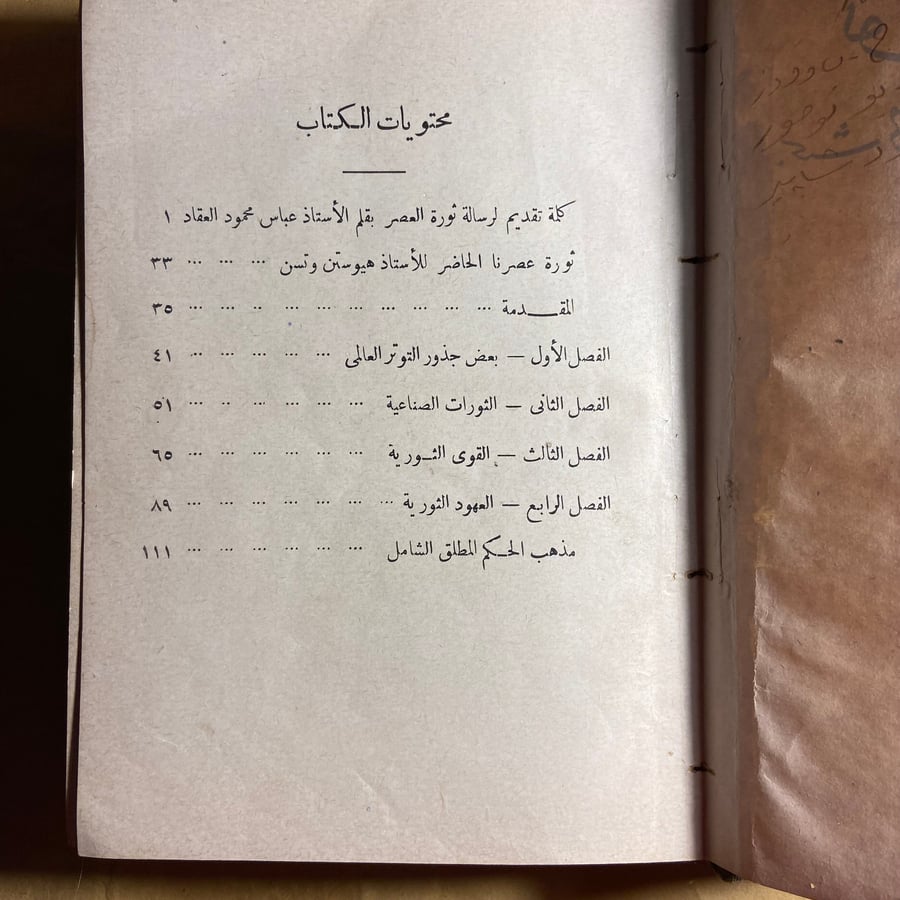 محتويات الكتاب
كلمة تقديم لرسالة ثورة العصر بقلم الأستاذ عباس محمود العقاد ١
ثورة عصرنا الحاضر للأستاذ هيوستن وتسن ... ... ... ٣٣
المقدمة ... ... ... ... ... ... ... .. ... ... ٣٥
الفصل الأول — بعض جذور التوتر العالمى ... ... ... ... .. ٤١
الفصل الثانى — الثورات الصناعية ... ... ... ... .. ... ٥١
الفصل الثالث — القوى الثورية ... ... ... ... ... ... ٦٥
الفصل الرابع — العهود الثورية ... ... ... ... ... ... ... ٨٩
مذهب الحكم المطلق الشامل ... ... ... ... ... ... ١١١